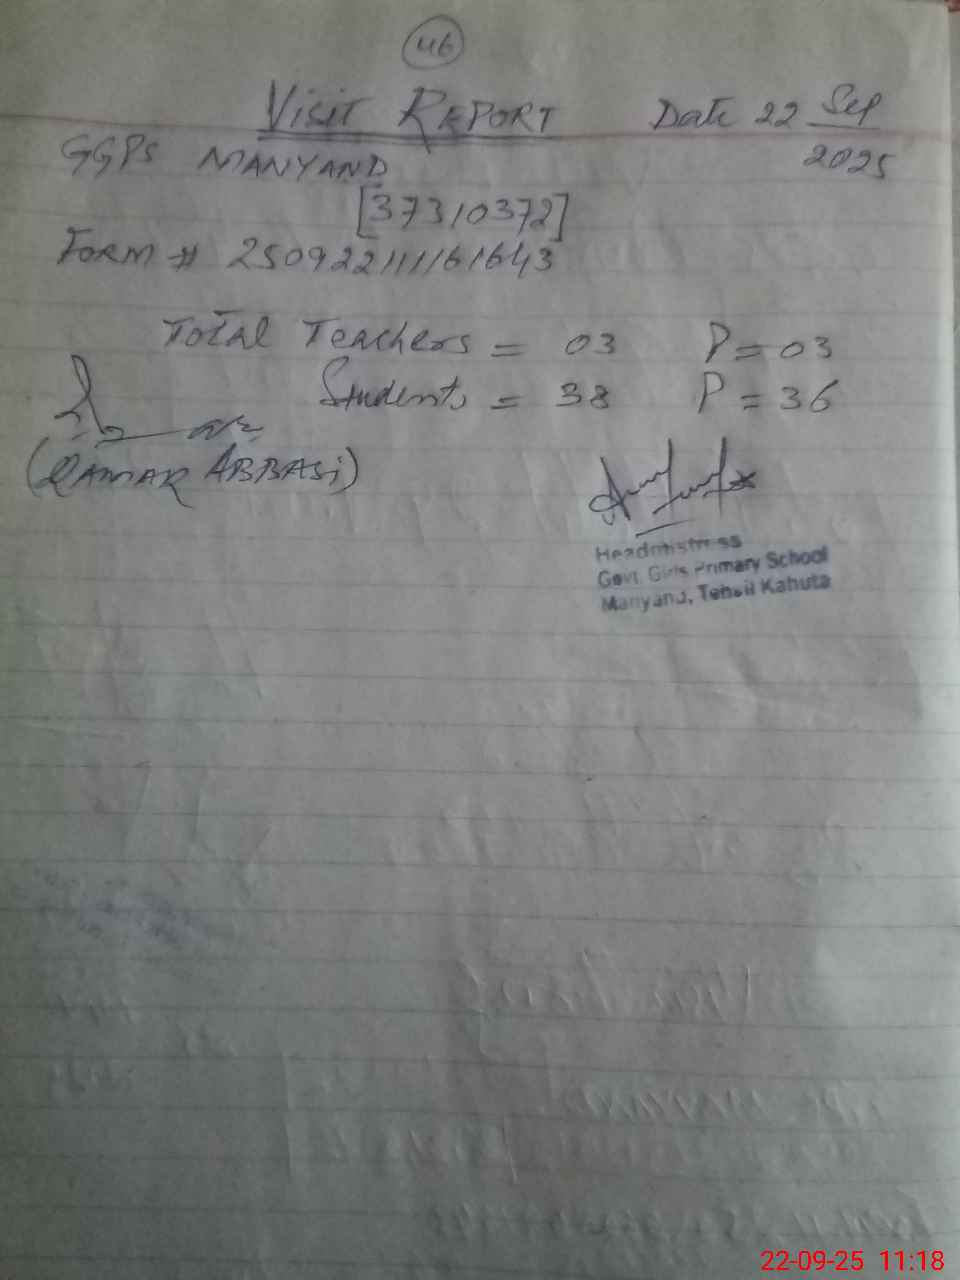 46
VISIT REPORT Date 22 Sep
2025
GGPS MANYAND
[37310372]
FORM # 250922111161643
Total Teachers = 03 P = 03
Students = 38 P = 36
(QAMAR ABBASi)
Headmistress
Govt. Girls Primary School
Manyand, Tehsil Kahuta
22-09-25 11:18